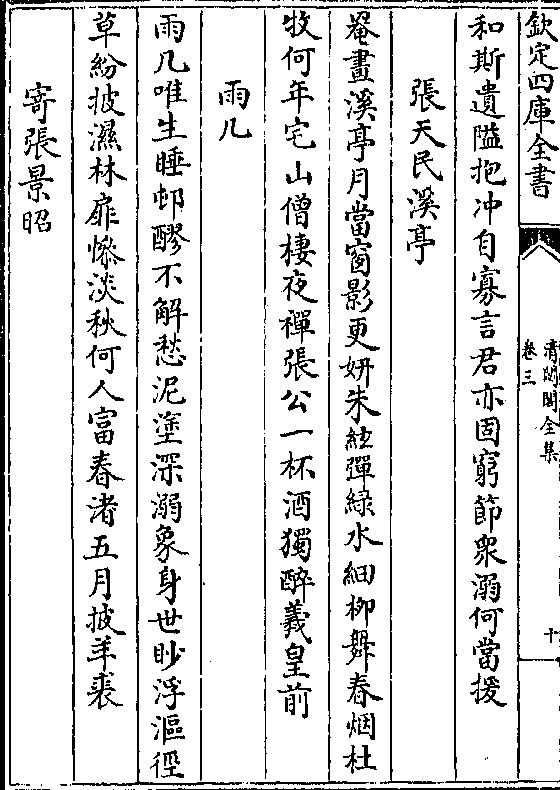 欽定四庫全書
清閟閣全集
卷三
十
和斯遺隘抱冲自寡言君亦固窮節衆溺何當援
張天民溪亭
罨畫溪亭月當窗影更妍朱絃彈緑水細栁舞春烟杜
牧何年宅山僧棲夜禪張公一杯酒獨醉羲皇前
雨几
雨几唯生睡邨醪不解愁泥塗深溺象身世眇浮漚徑
草紛披濕林扉慘淡秋何人富春渚五月披羊裘
寄張景昭